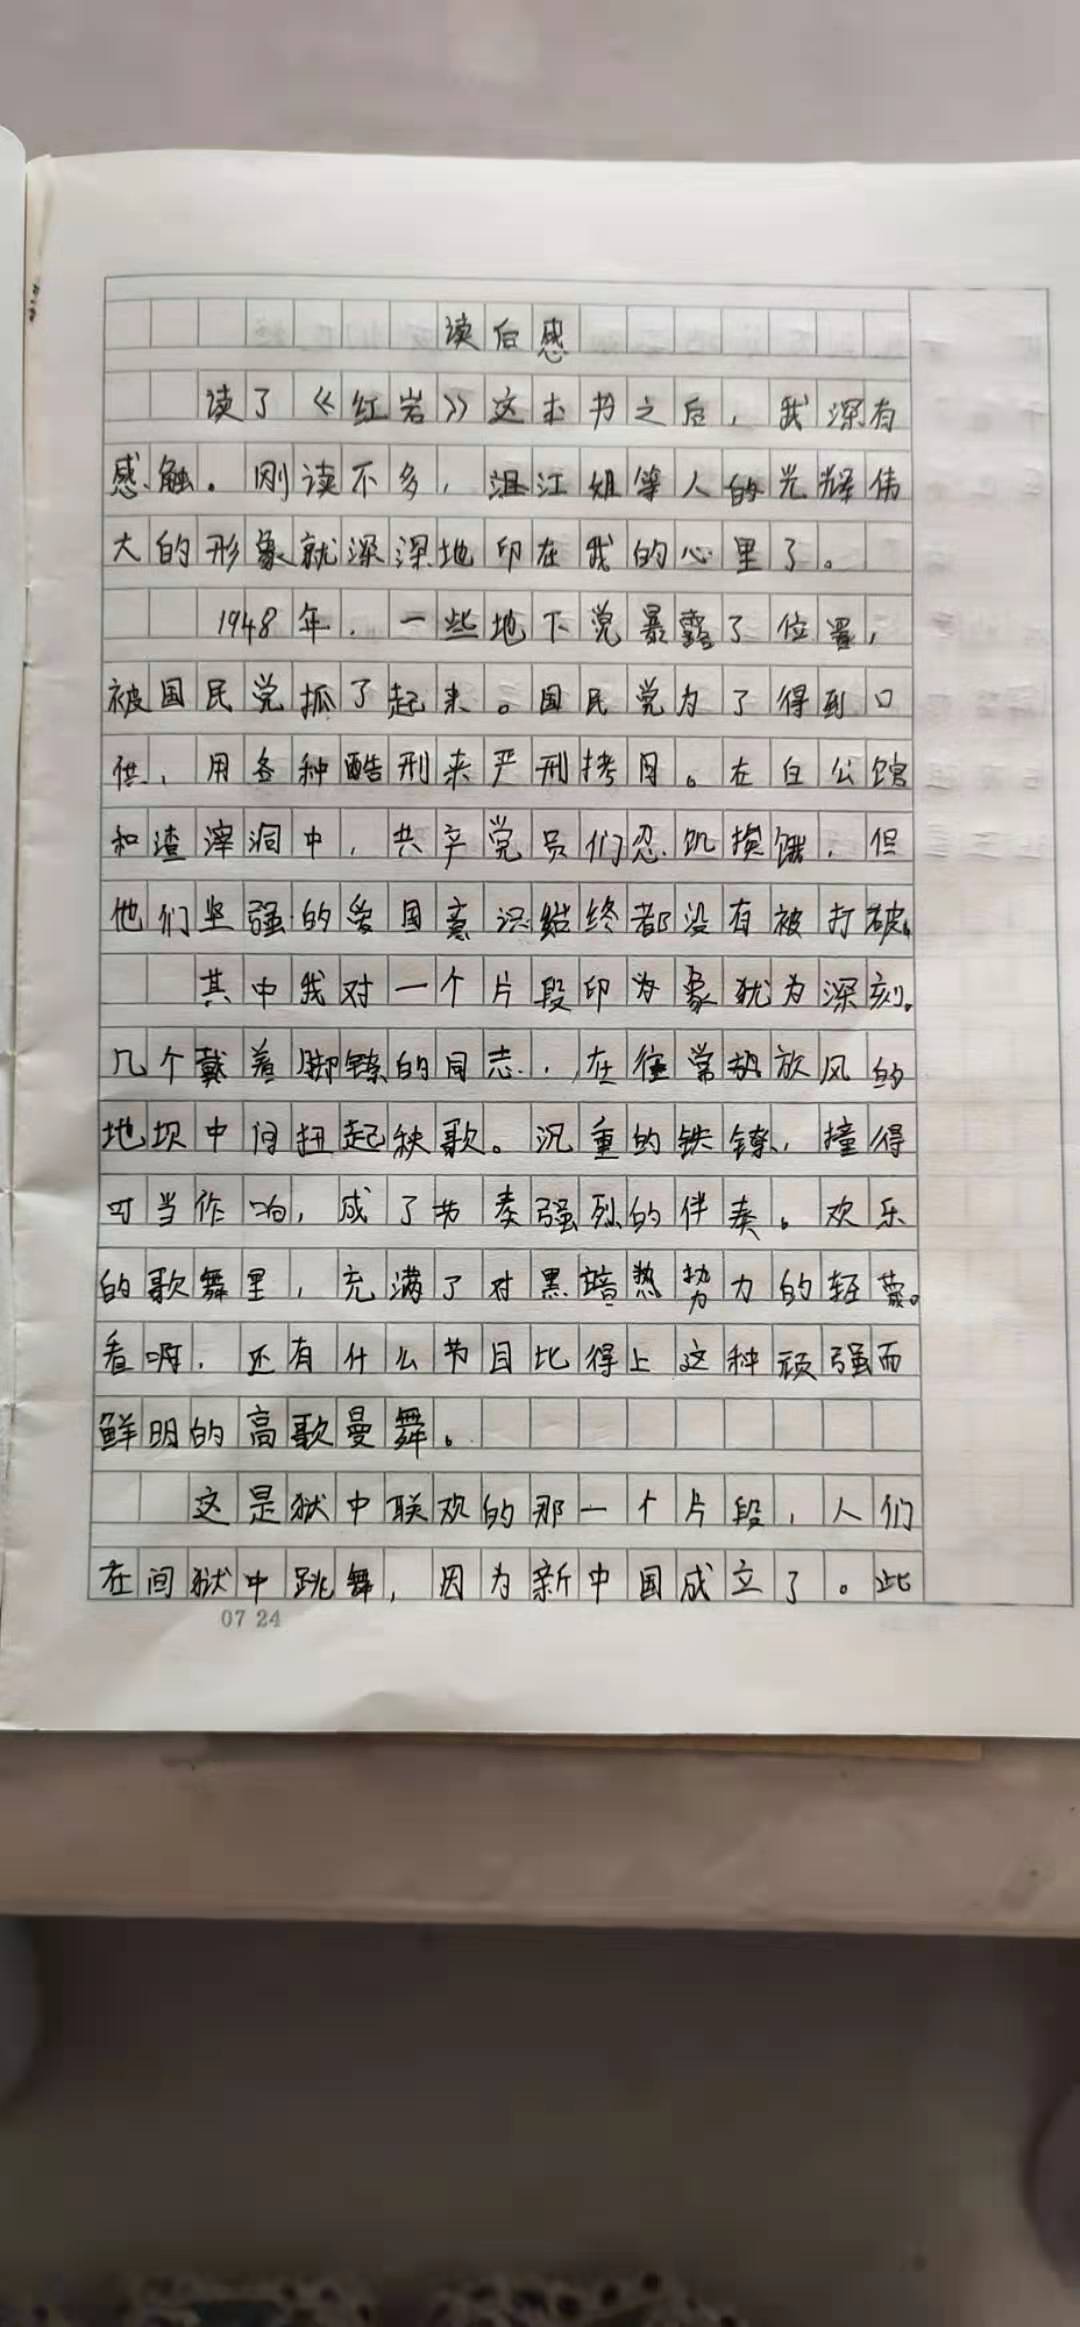 读后感
读了《红岩》这本书之后，我深有
感触。刚读不多，江姐等人的光辉伟
大的形象就深深地印在我的心里了。
1948年，一些地下党暴露了位置，
被国民党抓了起来。国民党为了得到口
供，用各种酷刑来严刑拷问。在白公馆
和渣滓洞中，共产党员们忍饥挨饿，但
他们坚强的爱国意识始终都没有被打破。
其中我对一个片段印为象犹为深刻。
几个戴着脚镣的同志，在往常放风的
地坝中间扭起秧歌。沉重的铁镣，撞得
叮当作响，成了节奏强烈的伴奏。欢乐
的歌舞里，充满了对黑暗势力的轻蔑。
看啊，还有什么节目比得上这种顽强而
鲜明的高歌曼舞。
这是狱中联欢的那一个片段，人们
在间狱中跳舞，因为新中国成立了。此
07 24